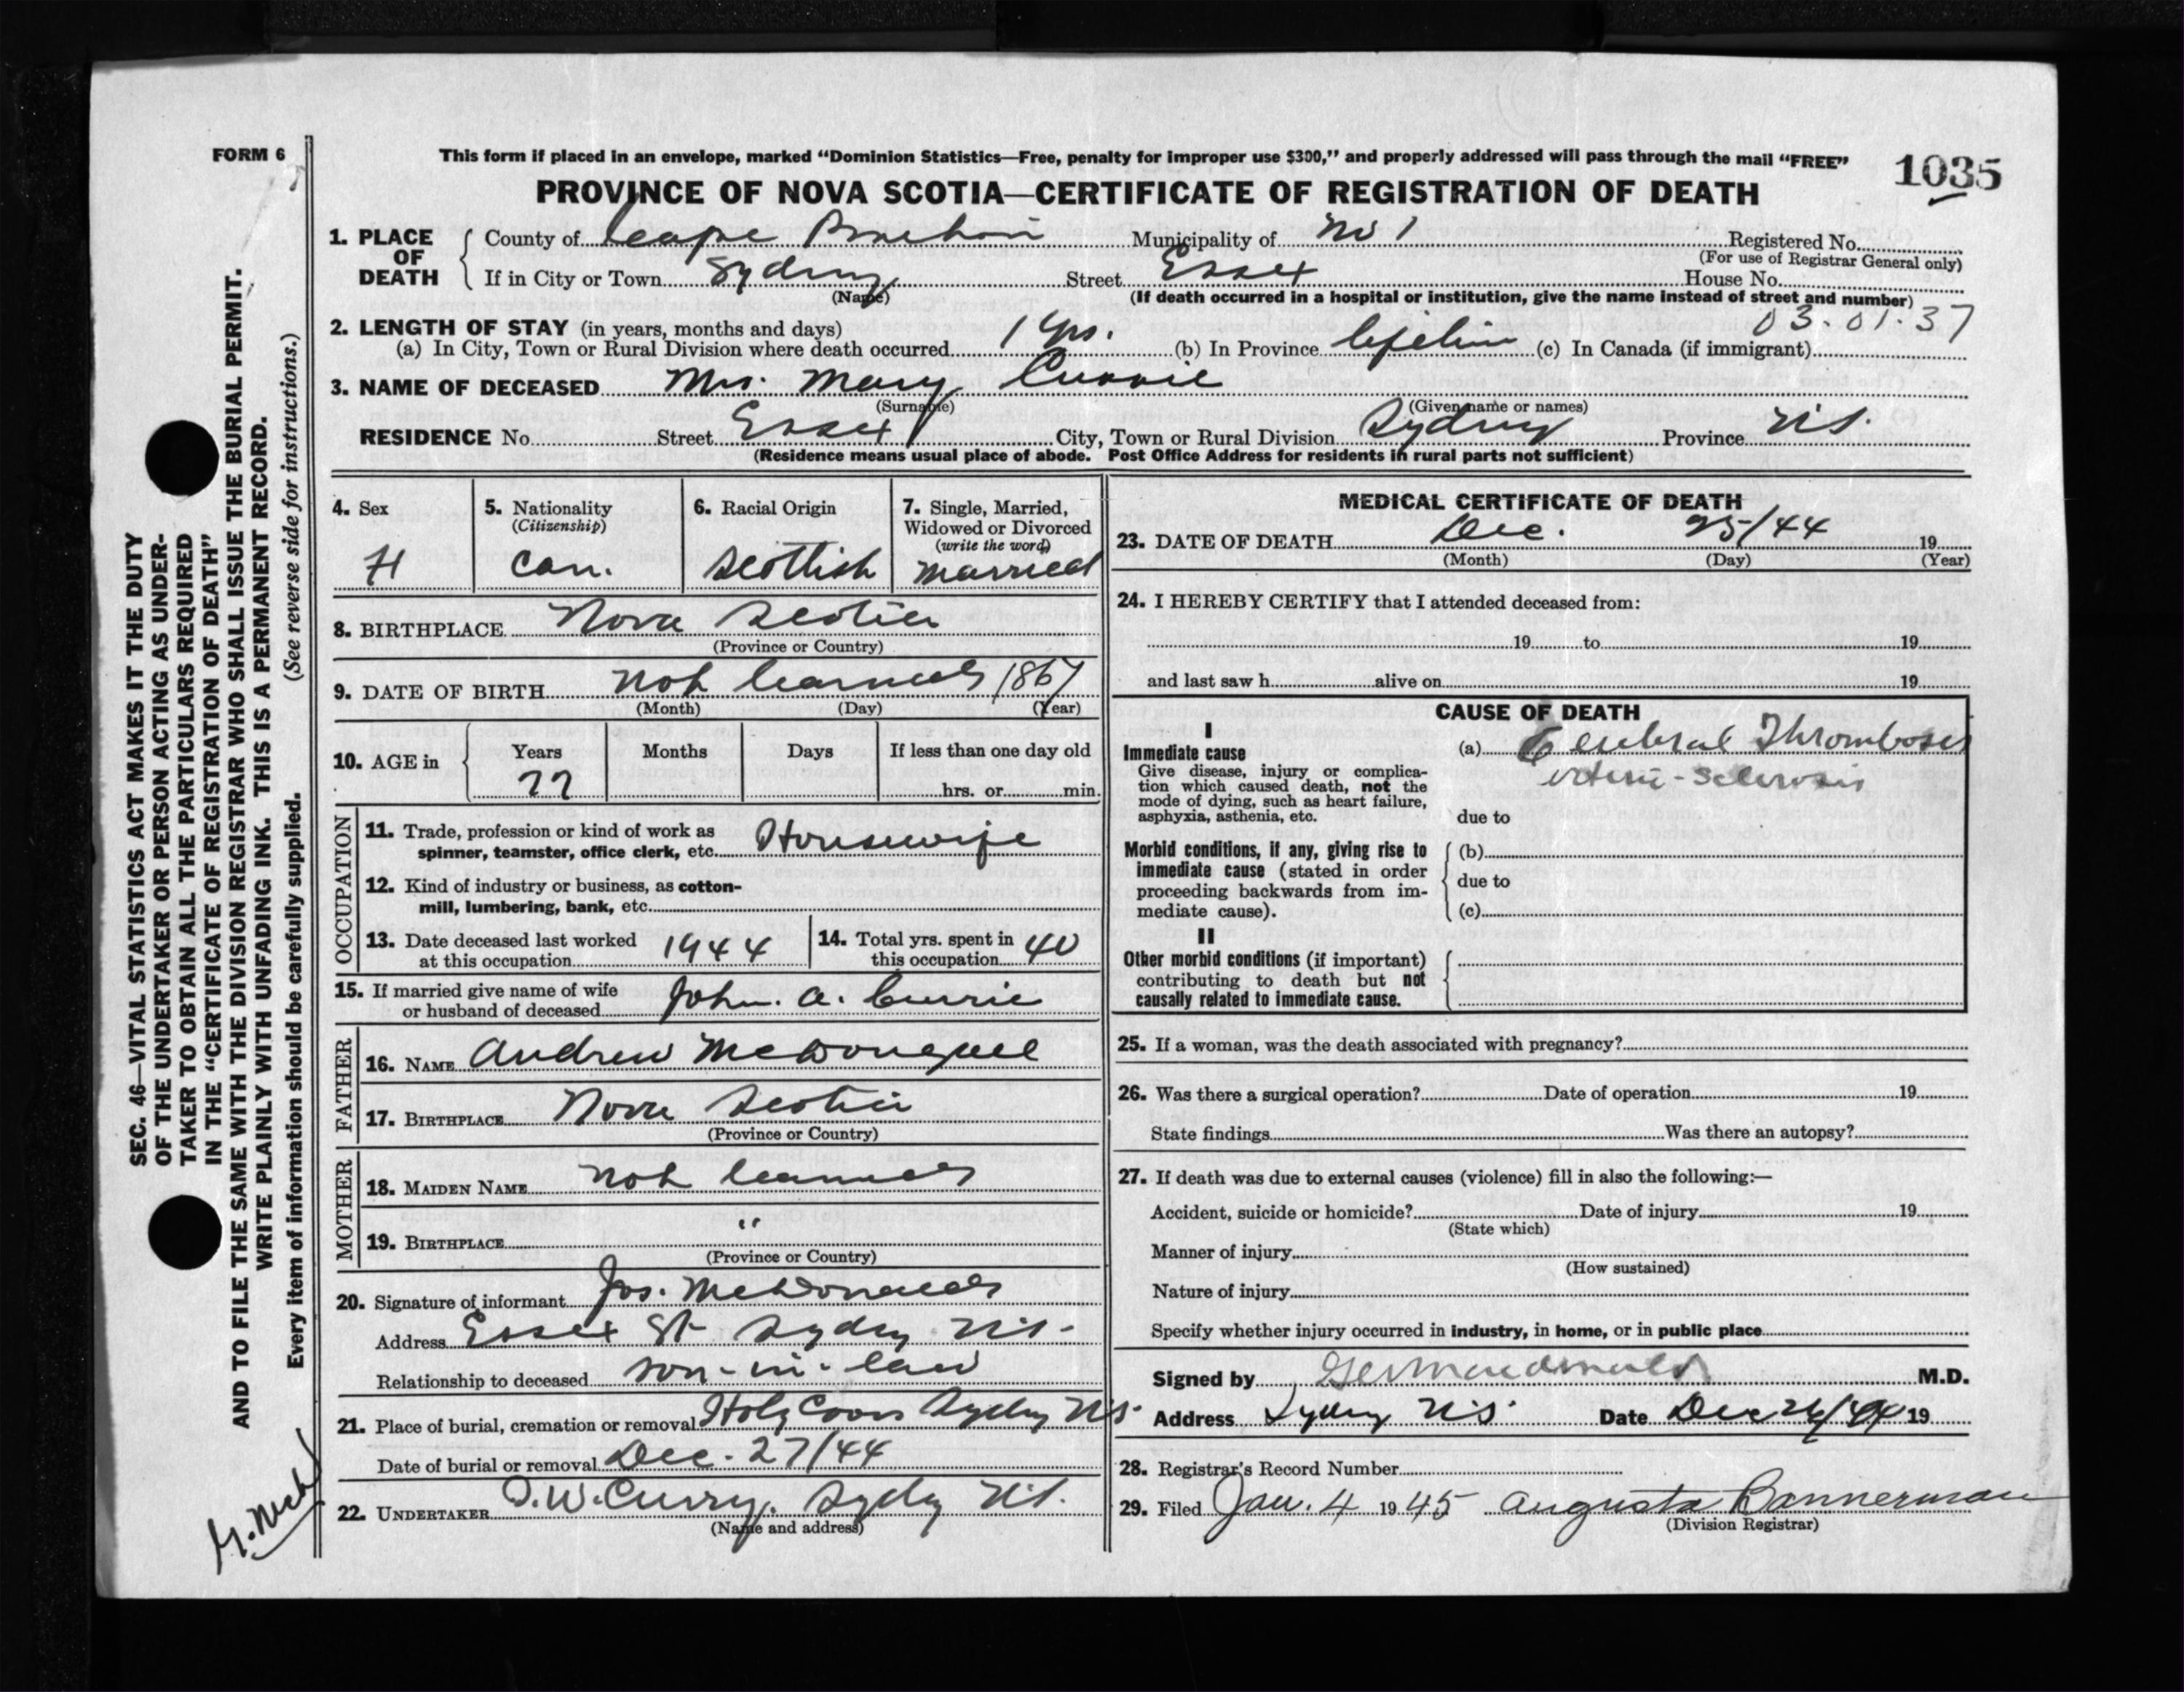 FORM 6
This form if placed in an envelope, marked “Dominion Statistics—Free, penalty for improper use $300,” and properly addressed will pass through the mail “FREE”
1035
PROVINCE OF NOVA SCOTIA—CERTIFICATE OF REGISTRATION OF DEATH
1. PLACE OF DEATH
County of Cape Breton Municipality of No 1 Registered No.
(For use of Registrar General only)
If in City or Town Sydney Street Essex House No.
(Name) (If death occurred in a hospital or institution, give the name instead of street and number)
03.01.37
2. LENGTH OF STAY (in years, months and days)
(a) In City, Town or Rural Division where death occurred 1 yrs. (b) In Province lifetime (c) In Canada (if immigrant)
3. NAME OF DECEASED Mrs. Mary Currie
(Surname) (Given name or names)
RESIDENCE No. Street Essex City, Town or Rural Division Sydney Province N.S.
(Residence means usual place of abode. Post Office Address for residents in rural parts not sufficient)
4. Sex
F
5. Nationality
(Citizenship)
Can.
6. Racial Origin
Scottish
7. Single, Married,
Widowed or Divorced
(write the word)
Married
8. BIRTHPLACE Nova Scotia
(Province or Country)
9. DATE OF BIRTH Not learned 1867
(Month) (Day) (Year)
10. AGE in
Years Months Days If less than one day old
77 hrs. or min.
OCCUPATION
11. Trade, profession or kind of work as
spinner, teamster, office clerk, etc. Housewife
12. Kind of industry or business, as cotton-
mill, lumbering, bank, etc.
13. Date deceased last worked
at this occupation 1944
14. Total yrs. spent in
this occupation 40
15. If married give name of wife
or husband of deceased John. A. Currie
FATHER
16. NAME Andrew McDougall
17. BIRTHPLACE Nova Scotia
(Province or Country)
MOTHER
18. MAIDEN NAME Not learned
19. BIRTHPLACE "
(Province or Country)
20. Signature of informant Jos. McDonald
Address Essex St Sydney N.S.
Relationship to deceased son-in-law
21. Place of burial, cremation or removal Holy Cross Sydney N.S.
Date of burial or removal Dec. 27/44
22. UNDERTAKER T.W. Curry, Sydney N.S.
(Name and address)
MEDICAL CERTIFICATE OF DEATH
23. DATE OF DEATH Dec. 25/44 19
(Month) (Day) (Year)
24. I HEREBY CERTIFY that I attended deceased from:
19 to 19
and last saw h alive on 19
CAUSE OF DEATH
I
Immediate cause
Give disease, injury or complica-
tion which caused death, not the
mode of dying, such as heart failure,
asphyxia, asthenia, etc.
(a) Cerebral Thrombosis
arterio-sclerosis
due to
Morbid conditions, if any, giving rise to
immediate cause (stated in order
proceeding backwards from im-
mediate cause).
(b)
due to
(c)
II
Other morbid conditions (if important)
contributing to death but not
causally related to immediate cause.
25. If a woman, was the death associated with pregnancy?
26. Was there a surgical operation? Date of operation 19
State findings Was there an autopsy?
27. If death was due to external causes (violence) fill in also the following:—
Accident, suicide or homicide? Date of injury 19
(State which)
Manner of injury
(How sustained)
Nature of injury
Specify whether injury occurred in industry, in home, or in public place
Signed by M.D.
Address Sydney N.S. Date Dec 26/44 19
28. Registrar's Record Number
29. Filed Jan. 4 1945 Augusta Bannerman
(Division Registrar)
SEC. 46—VITAL STATISTICS ACT MAKES IT THE DUTY
OF THE UNDERTAKER OR PERSON ACTING AS UNDER-
TAKER TO OBTAIN ALL THE PARTICULARS REQUIRED
IN THE “CERTIFICATE OF REGISTRATION OF DEATH”
AND TO FILE THE SAME WITH THE DIVISION REGISTRAR WHO SHALL ISSUE THE BURIAL PERMIT.
WRITE PLAINLY WITH UNFADING INK. THIS IS A PERMANENT RECORD.
Every item of information should be carefully supplied. (See reverse side for instructions.)